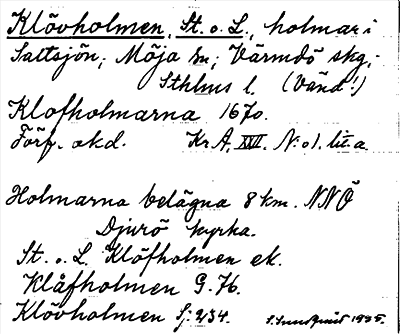 Klövholmen, St. o. L., holmar i
Saltsjön; Möja sn; Värmdö skg;
Sthlms l. (Vänd!)
Klofholmarna 1670.
Förf. okd. Kr A, XVII. N:o 1. lit. a.
Holmarna belägna 8 km. NNÖ
Djurö kyrka.
St. o. L. Klöfholmen ek.
Klåfholmen G. K.
Klövholmen Sj: 234. 1935.